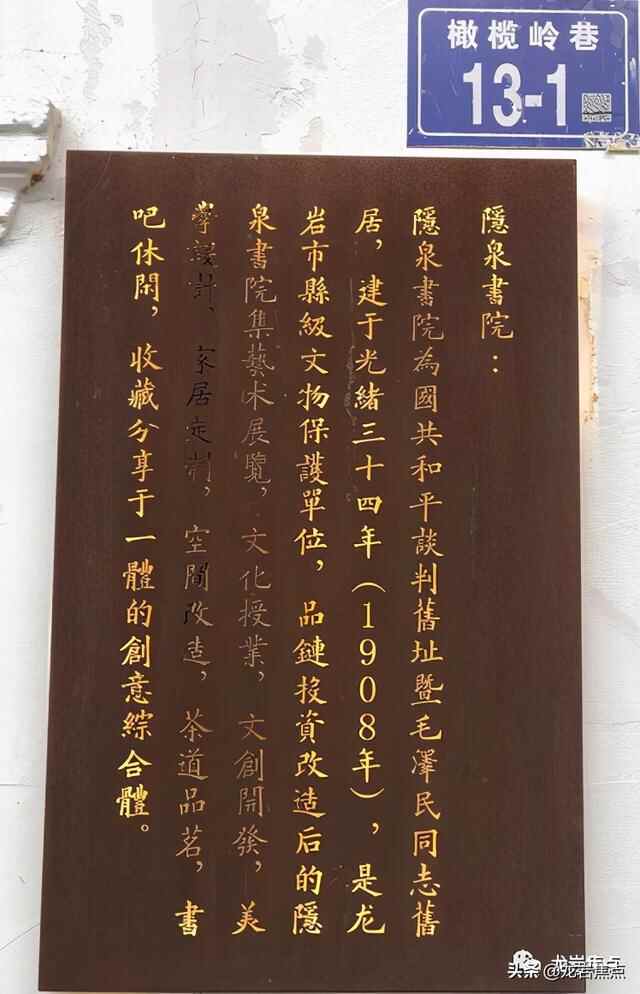 橄榄岭巷
13-1
隱泉書院：
隱泉書院為國共和平談判舊址暨毛澤民同志舊
居，建于光緒三十四年（1908年），是龙
岩市縣級文物保護單位，品鏈投資改造后的隱
泉書院集藝术展覽，文化授業，文創開發，美
學設計、家居定制，空間改造，茶道品茗，書
吧休閑，收藏分享于一體的創意綜合體。
龙岩焦点
头条 @龙岩焦点